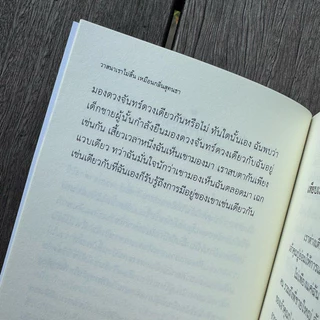 วาสนาเราไม่สิ้น เหมือนกลิ่นสุคนธา
มองดวงจันทร์ดวงเดียวกันหรือไม่ ทันใดนั้นเอง ฉันพบว่า
เด็กชายผู้นั้นกำลังยืนมองดวงจันทร์ดวงเดียวกับฉันอยู่
เช่นกัน เสี้ยวเวลาหนึ่งฉันเห็นเขามองมา เราสบตากันเพียง
แวบเดียว ทว่าฉันมั่นใจนักว่าเขามองเห็นฉันตลอดมา เฉก
เช่นเดียวกับที่ฉันเองก็รับรู้ถึงการมีอยู่ของเขาเช่นเดียวกัน